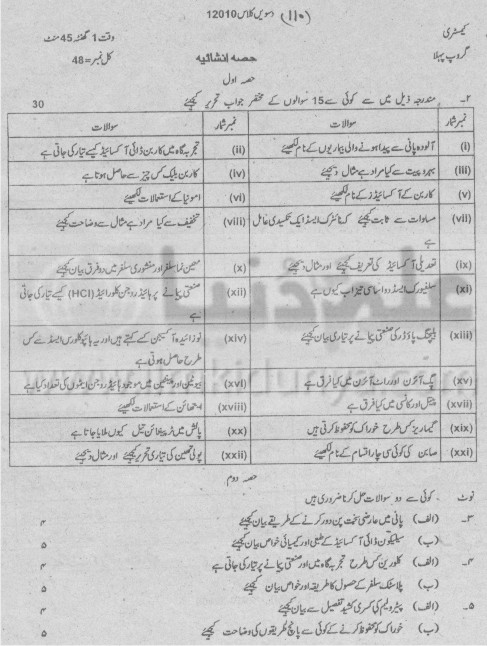 کیمسٹری (۱۱۰) دسویں کلاس 12010
وقت 1 گھنٹہ 45 منٹ
گروپ پہلا حصہ انشائیہ کل نمبر = 48
حصہ اول
۲۔ مندرجہ ذیل میں سے کوئی سے 15 سوالوں کے مختصر جواب تحریر کیجئے 30
نمبر شمار سوالات نمبر شمار سوالات
(i) آلودہ پانی سے پیدا ہونے والی بیماریوں کے نام لکھئیے (ii) تجربہ گاہ میں کاربن ڈائی آکسائیڈ کیسے تیار کی جاتی ہے
(iii) بہروپیت سے کیا مراد ہے مثال دیجئیے (iv) کاربن بلیک کس چیز سے حاصل ہوتا ہے
(v) کاربن کے آکسائیڈز کے نام لکھئیے (vi) امونیا کے استعمالات لکھئیے
(vii) مساوات سے ثابت کیجئیے کہ نائٹرک ایسڈ ایک تکسیدی عامل ہے (viii) تخفیف سے کیا مراد ہے مثال سے وضاحت کیجئیے
(ix) تعدیلی آکسائیڈ کی تعریف کیجئیے اور مثال دیجئیے (x) معین نما سلفر اور منشوری سلفر میں دو فرق بیان کیجئیے
(xi) سلفیورک ایسڈ دو اساسی تیزاب کیوں ہے (xii) صنعتی پیمانے پر ہائیڈروجن کلورائیڈ (HCl) کیسے تیار کی جاتی ہے
(xiii) بلیچنگ پاؤڈر کی صنعتی پیمانے پر تیاری بیان کیجئیے (xiv) نوزائیدہ آکسیجن کسے کہتے ہیں اور یہ ہائپوکلورس ایسڈ سے کس طرح حاصل ہوتی ہے
(xv) پگ آئرن اور راٹ آئرن میں کیا فرق ہے (xvi) بیوٹین اور میں موجود ہائیڈروجن ایٹموں کی تعداد کیا ہے
(xvii) پیتل اور کانسی میں کیا فرق ہے (xviii) استھائن کے استعمالات لکھئیے
(xix) گیما ریز کس طرح خوراک کو محفوظ کرتی ہیں (xx) پالش میں تارپین تیل کیوں ملایا جاتا ہے
(xxi) صابن کی کوئی سی چار اقسام کے نام لکھئیے (xxii) پولی تھین کی تیاری تحریر کیجئیے اور مثال دیجئیے
حصہ دوم
نوٹ۔ کوئی سے دو سوالات حل کرنا ضروری ہیں
۳۔ (الف) پانی میں عارضی سخت پن دور کرنے کے طریقے بیان کیجئیے ۴
(ب) سلیکون ڈائی آکسائیڈ کے طبعی اور کیمیائی خواص بیان کیجئیے ۵
۴۔ (الف) کلورین کس طرح تجربہ گاہ میں اور صنعتی پیمانے پر تیار کی جاتی ہے ۴
(ب) پلاسٹک سلفر کے حصول کا طریقہ اور خواص بیان کیجئیے ۵
۵۔ (الف) پیٹرولیم کی کسری کشید تفصیل سے بیان کیجئیے ۴
(ب) خوراک کو محفوظ کرنے کے کوئی سے پانچ طریقوں کی وضاحت کیجئیے ۵